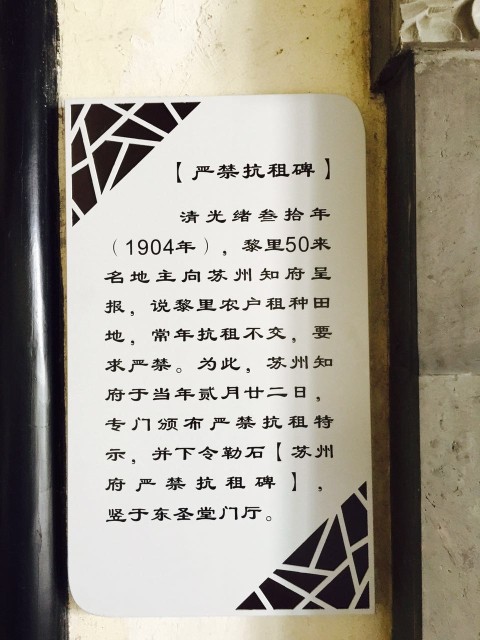 【严禁抗租碑】
清光绪叁拾年
（1904年），黎里50来
名地主向苏州知府呈
报，说黎里农户租种田
地，常年抗租不交，要
求严禁。为此，苏州知
府于当年贰月廿二日，
专门颁布严禁抗租特
示，并下令勒石【苏州
府严禁抗租碑】，
竖于东圣堂门厅。